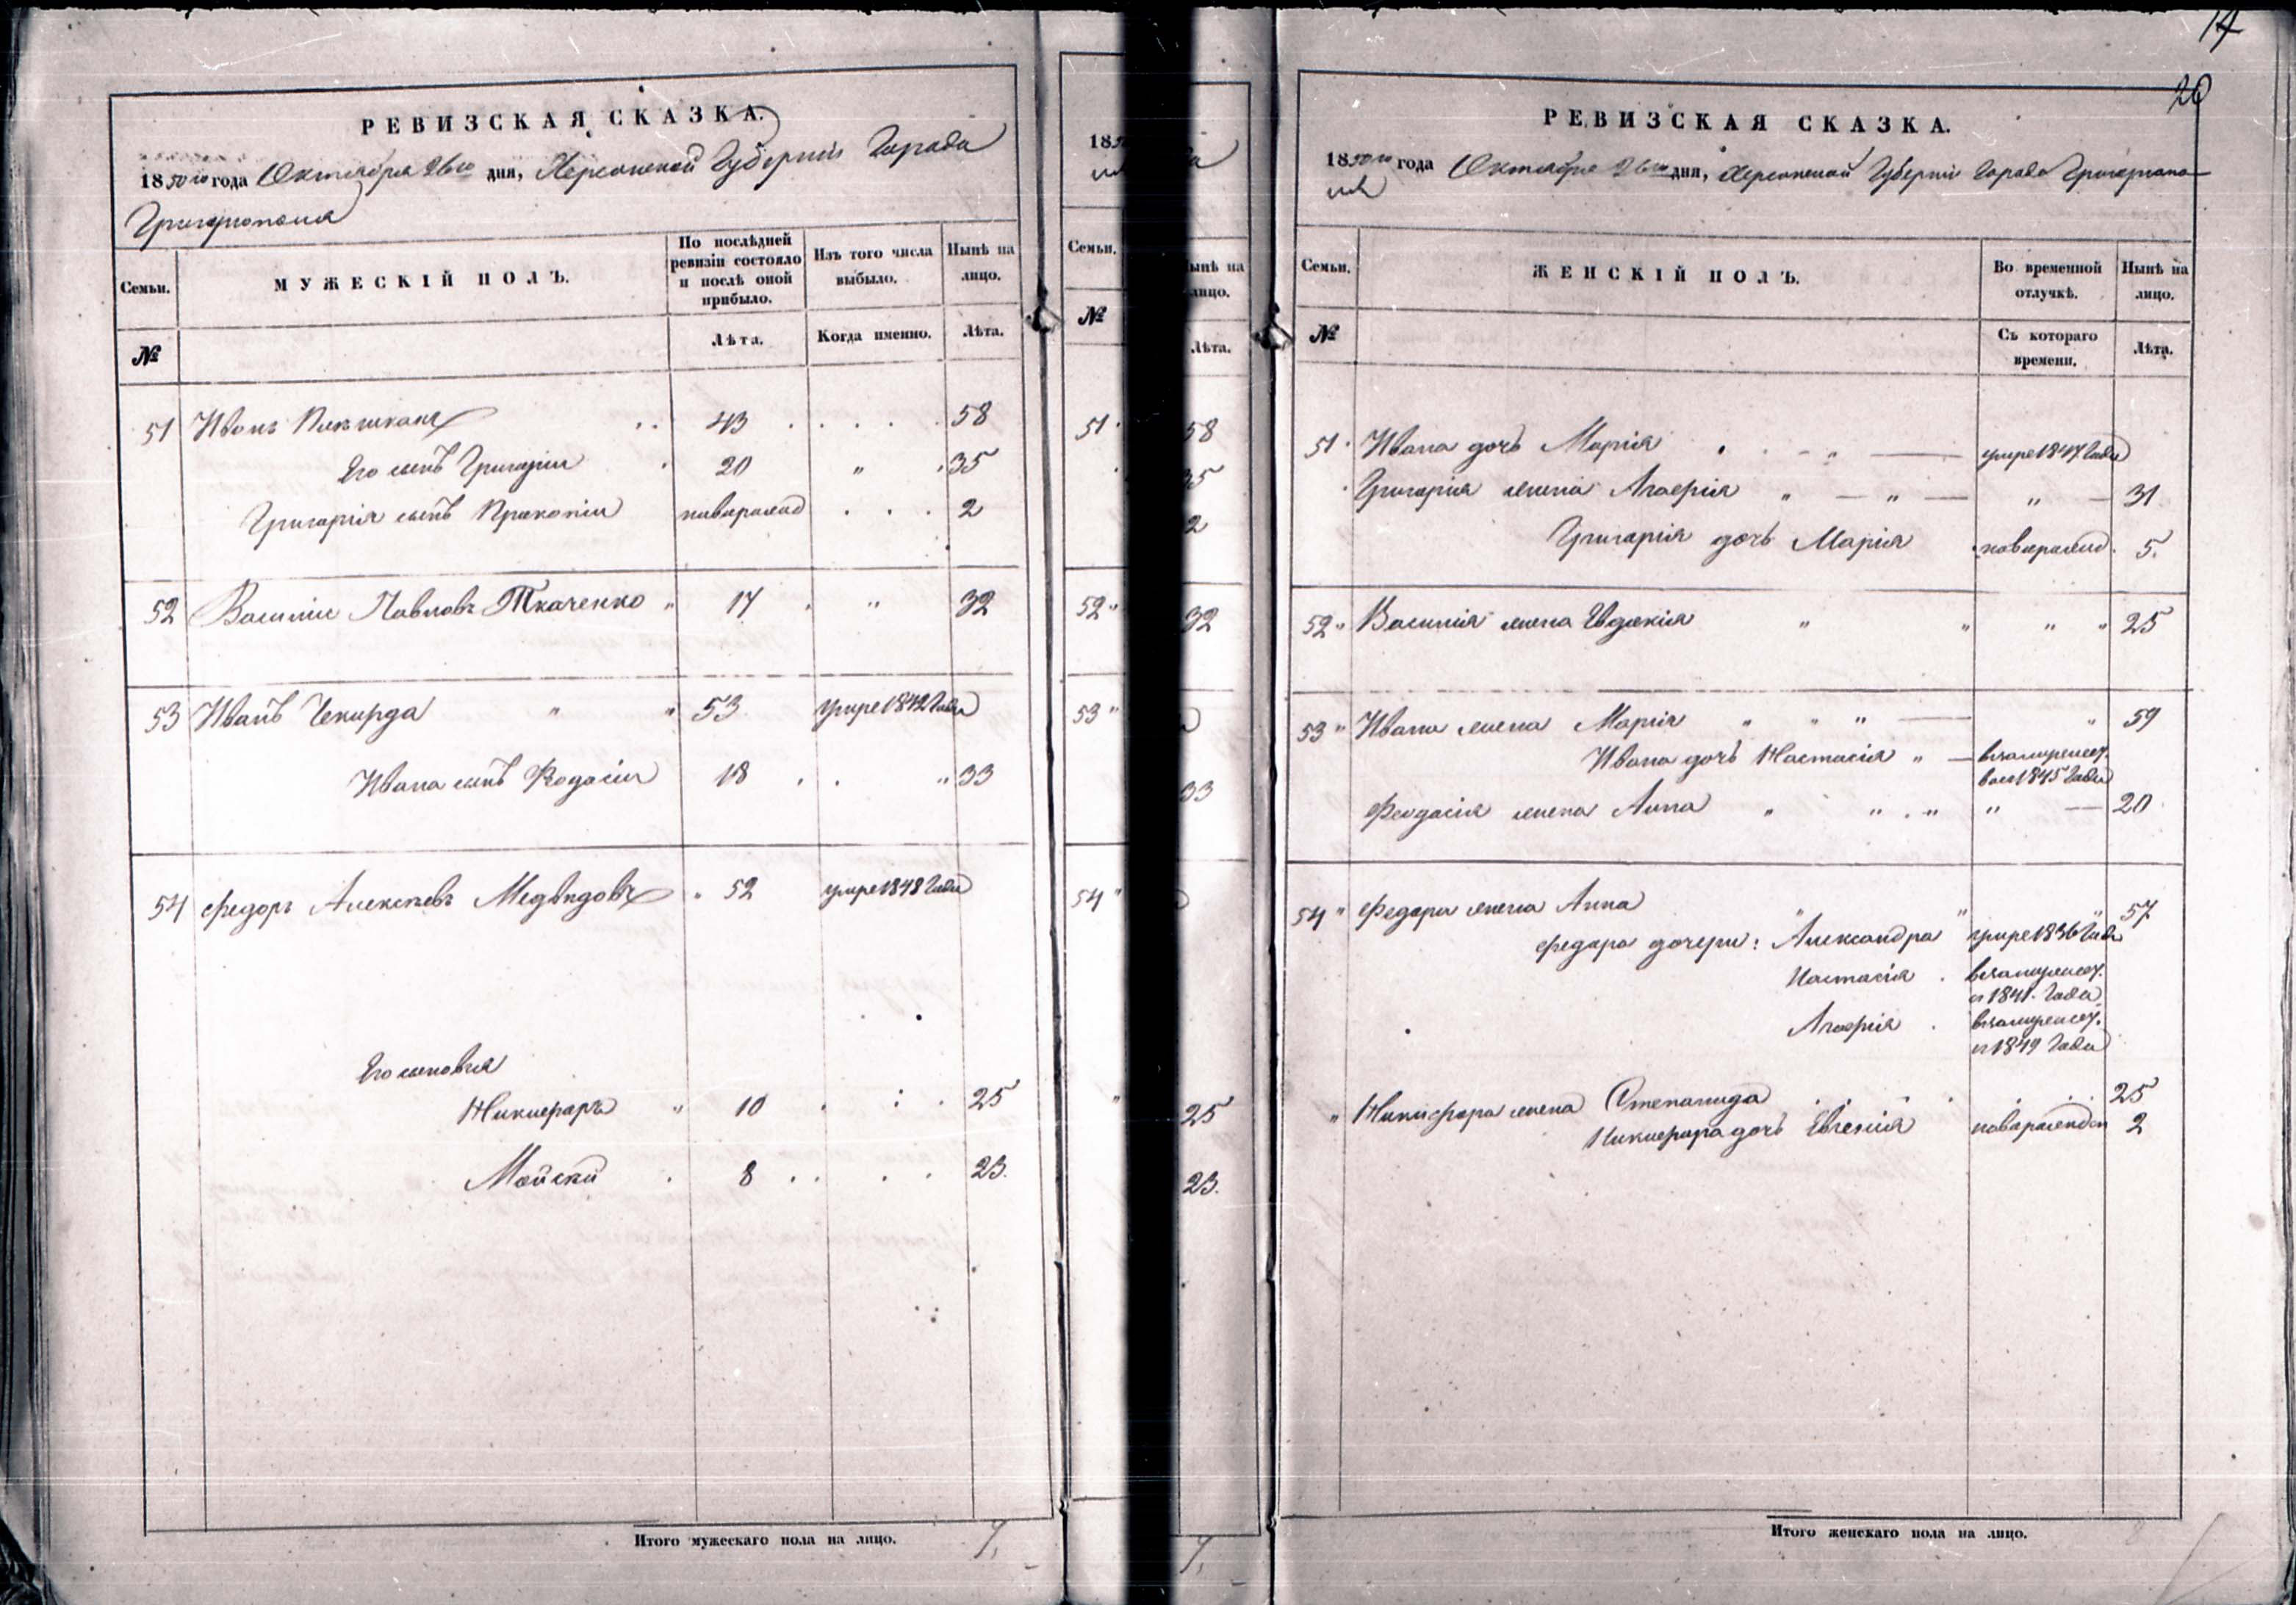 РЕВИЗСКАЯ СКАЗКА.
1850го года Октября 26го дня, Херсонской Губерніи Города
Григоріополя
Семьи.
МУЖЕСКІЙ ПОЛЪ.
По послѣдней ревизіи состояло и послѣ оной прибыло.
Изъ того числа выбыло.
Нынѣ на лицо.
№
Лѣта.
Когда именно.
Лѣта.
51 Иванъ 43 58
Его сынъ Григорій 20 " 35
Григорія сынъ Прокопій новорожд 2
52 Василій Павловъ Ткаченко " 17 " 32
53 Иванъ Чекирда " " 53 умре 1842 Года
Ивана сынъ Ѳодосій 18 " 33
54 Федоръ Алексѣевъ Медвѣдовъ 52 умре 1848 Года
Его сыновья
Никифоръ " 10 25
Мойсей 8 23.
Итого мужескаго пола на лицо. 7.
185
Семьи.
№
51
52 "
53 "
54 "
нынѣ на
лицо.
Лѣта.
58
35
2
32
33
25
23.
7.
14
20
РЕВИЗСКАЯ СКАЗКА.
1850го года Октября 26го дня, Херсонской Губерніи Города Григоріопо-
ля
Семьи.
ЖЕНСКІЙ ПОЛЪ.
Во временной отлучкѣ.
Нынѣ на лицо.
№
Съ котораго времени.
Лѣта.
51 Ивана дочь Марія умре 1847 Года
Григорія жена Агафія " — " — " — 31
Григорія дочь Марія новорожд. 5.
52 " Василія жена Евдокія " " " " 25
53 " Ивана жена Марія " " " — " 59
Ивана дочь Настасія " — въ замужест.
1845 Года
Феодосія жена Анна " " " " — 20
54 " Федора жена Анна " " " 57
Федора дочери: Александра умре 1836 Года
Настасія въ замужест.
съ 1841 Года
Агафія въ замужест.
съ 1849 Года
" Никифора жена Степанида 25
Никифора дочь Евгенія новорожден 2
Итого женскаго пола на лицо.